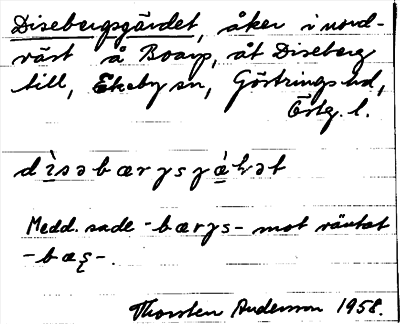 Disebergsgärdet, åker i nord-
väst å Boarp, åt Diseberg
till, Ekeby sn, Göstrings hd,
Östg. l.
Medd. sade -bærgs- mot väntat
Thorsten Andersson 1958.